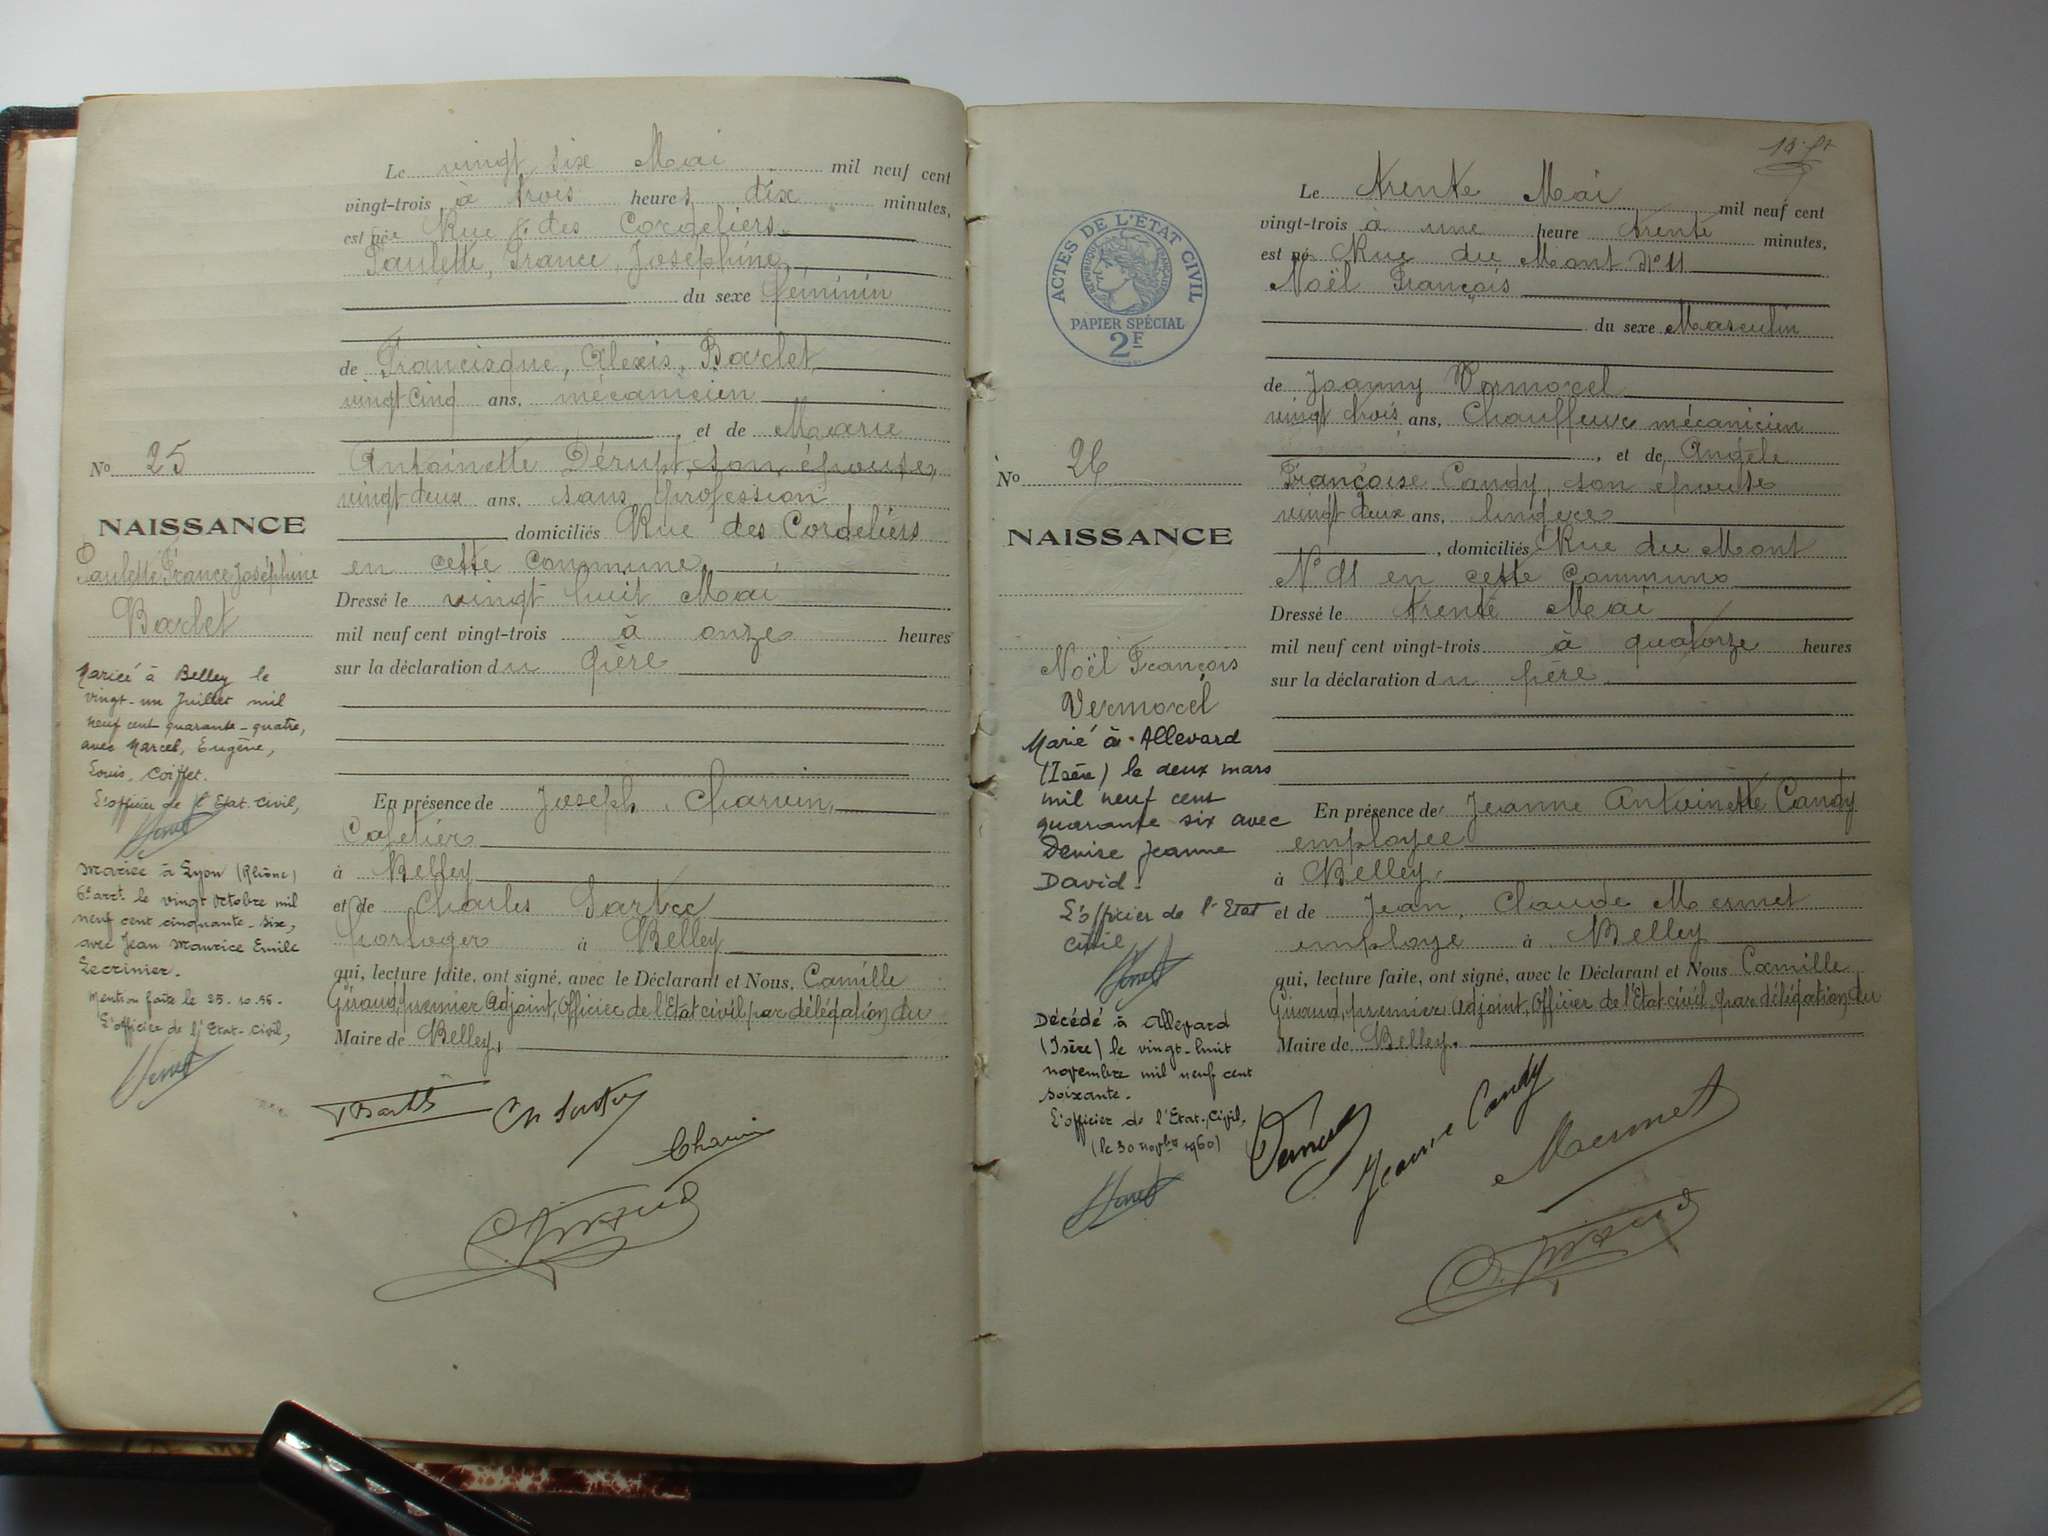 Le vingt six Mai mil neuf cent
vingt-trois à trois heures dix minutes,
est née Rue des Cordeliers
Paulette, France, Joséphine
du sexe féminin
de Francisque, Alexis, Barlet
vingt cinq ans, mécanicien
, et de Marie
Antoinette Dérupt, son épouse,
vingt deux ans, sans profession
domiciliés Rue des Cordeliers
en cette commune
Dressé le vingt huit Mai
mil neuf cent vingt-trois à onze heures
sur la déclaration du père
En présence de Joseph Charvin,
Cafetier
à Belley
et de Charles
horloger à Belley
qui, lecture faite, ont signé, avec le Déclarant et Nous, Camille
Giraud, premier Adjoint, Officier de l'Etat civil par délégation du
Maire de Belley,
Charvin
C. Giraud
No 25
NAISSANCE
Paulette France Joséphine
Barlet
Mariée à Belley le
vingt-un Juillet mil
neuf cent quarante-quatre,
avec Marcel, Eugène,
Louis, Coiffet.
L'officier de l'Etat-civil,
Mariée à Lyon (Rhône)
6e arrt. le vingt octobre mil
neuf cent cinquante-six,
avec Jean Maurice Emile
Lecrinier.
Mention faite le 25-10-56-
L'officier de l'Etat-civil,
ACTES DE L'ÉTAT CIVIL
RÉPUBLIQUE FRANÇAISE
PAPIER SPÉCIAL
2F
Le trente Mai mil neuf cent
vingt-trois à une heure trente minutes,
est né Rue du Mont No 11
Noël François
du sexe Masculin
de Joanny Vermorel
vingt trois ans, Chauffeur mécanicien
, et de Angèle
Françoise Candy, son épouse
vingt deux ans, lingère
, domiciliés Rue du Mont
No 11 en cette commune
Dressé le trente Mai
mil neuf cent vingt-trois à quatorze heures
sur la déclaration du père
En présence de Jeanne Antoinette Candy
employée
à Belley,
et de Jean, Claude Mermet
employé à Belley
qui, lecture faite, ont signé, avec le Déclarant et Nous Camille
Giraud, premier adjoint, Officier de l'Etat civil par délégation du
Maire de Belley.
Vermorel
Jeanne Candy
Mermet
C. Giraud
No 26
NAISSANCE
Noël François
Vermorel
Marié à Allevard
(Isère) le deux mars
mil neuf cent
quarante six avec
Denise Jeanne
David.
L'officier de l'Etat
civil
Décédé à Allevard
(Isère) le vingt-huit
novembre mil neuf cent
soixante.
L'officier de l'Etat-Civil,
(le 30 novbre 1960)